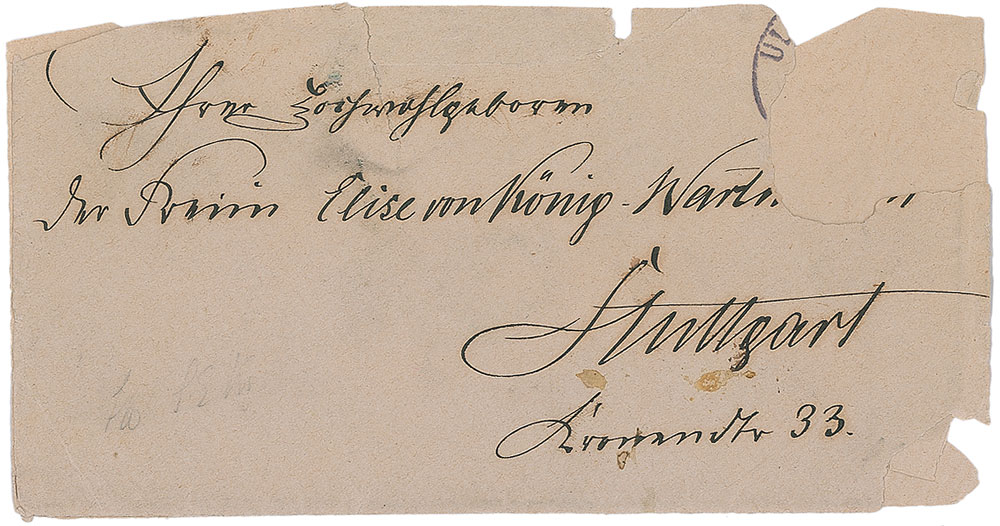 Ihrer Hochwohlgeboren
der Freiin Elise von König-
Stuttgart
Kronenstr 33.